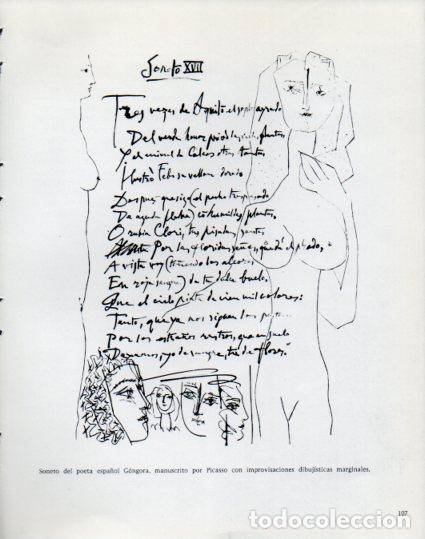 Soneto XVII
Tres veces de Aquilō el soplo ayrado
Del verde honor privó las verdes plantas
Y al animal de Colcos otras tantas
Ilustró Febo su vellon dorado
Despues que sigo (el pecho traspasado
De aguda flecha) cō humildes plantas,
O rubia Cloris, tus pisadas santas
Por las floridas señas, que dá el prado,
A vista voy (tiñendo los alcores
En roja sangre) de tu dulce buelo,
Que el cielo pinta de cien mil colores:
Tanto, que ya nos siguen los
Por los estraños rastros, que en el suelo
Dexamos, yo de sangre, tu de flores.
Soneto del poeta español Góngora, manuscrito por Picasso con improvisaciones dibujísticas marginales.
107
todocoleccion